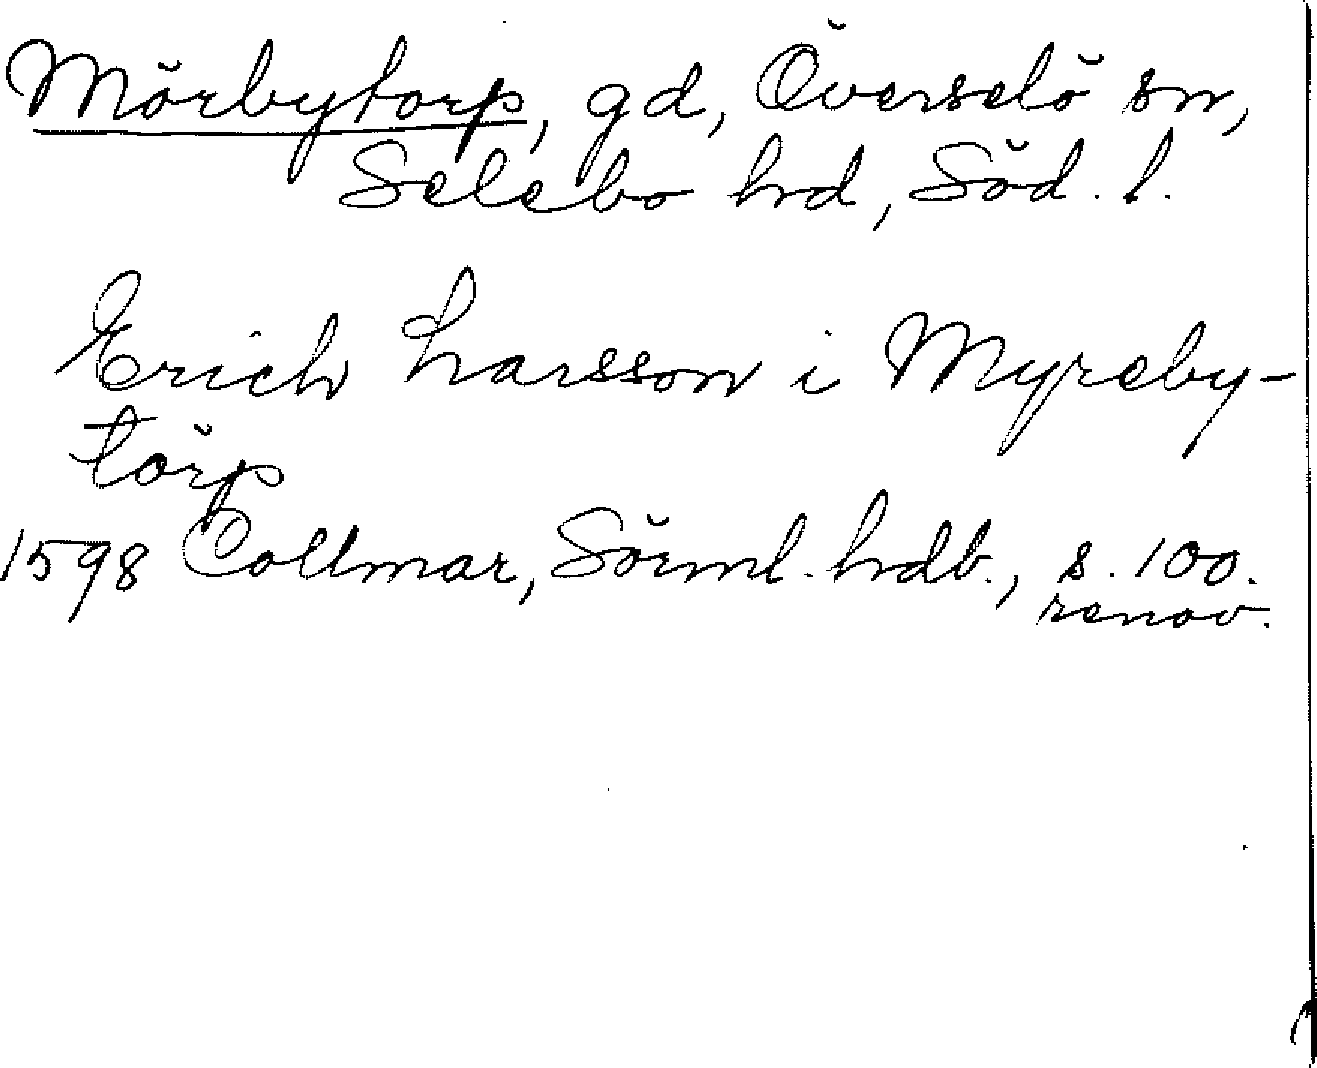 Mörbytorp, gd, Överselö sn,
Selebo hd, Söd. l.
Erich Larsson i Myreby-
törp
1598 Collmar, Sörml. hdb., s. 100.
renov.